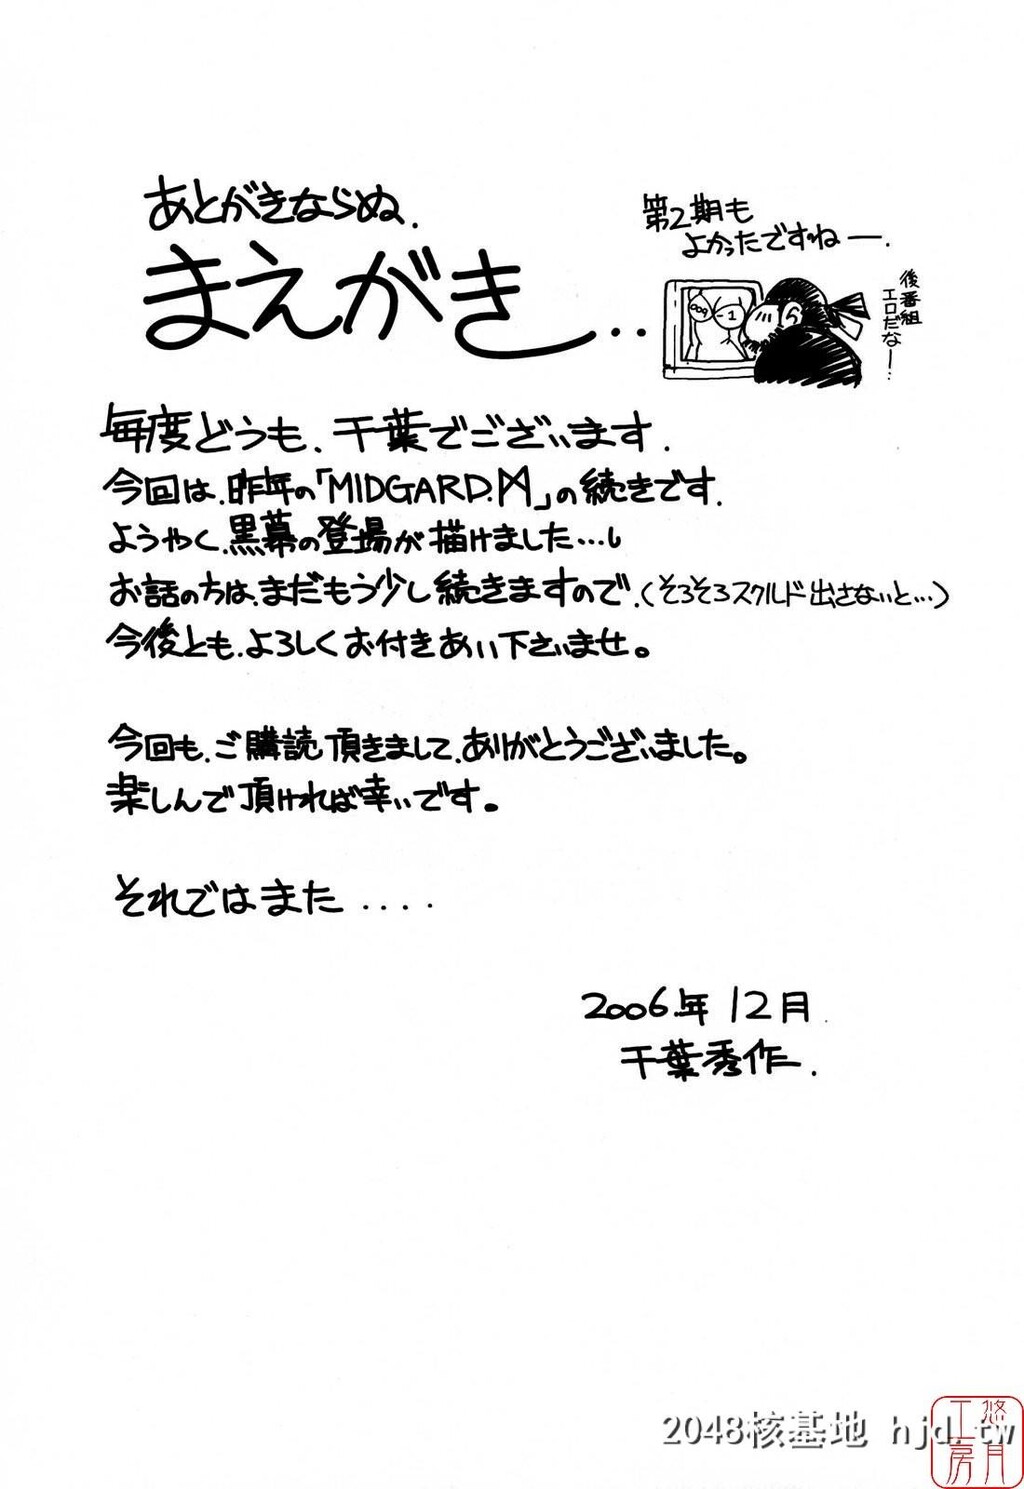 あとがきならぬ、
まえがき…
第2期も
よかったですねー.
後番組
エロだなー…
毎度どうも、千葉でございます.
今回は、昨年の「MIDGARD.ᛞ」の続きです.
ようやく、黒幕の登場が描けました…
お話のちは、まだもう少し続きますので、(そろそろスクルド出さないと…)
今後とも、よろしくお付きあい下さいませ。
今回も、ご購読頂きまして、ありがとうございました。
楽しんで頂ければ幸いです。
それではまた ....
2006年 12月
千葉秀作.
2048核基地 hjd.tw
悠月
工房